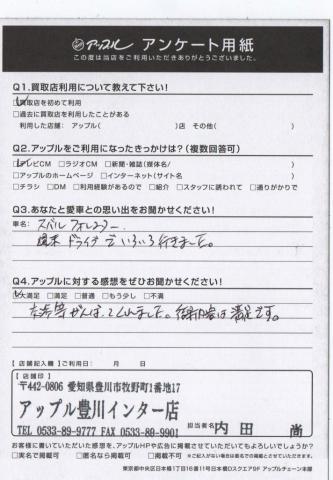 アップル アンケート用紙
この度は当店をご利用いただきありがとうございました。
Q1.買取店利用について教えて下さい!
□買取店を初めて利用
□過去に買取店を利用したことがある
利用した店舗: アップル( )店 その他( )
Q2.アップルをご利用になったきっかけは?(複数回答可)
□テレビCM □ラジオCM □新聞・雑誌(媒体名/ )
□アップルのホームページ □インターネット(サイト名 )
□チラシ □DM □利用経験があるので □紹介 □スタッフに誘われて □通りがかりで
Q3.あなたと愛車との思い出をお聞かせください!
車名: スバル フォレスター
週末 ドライブで いろいろ 行きました。
Q4.アップルに対する感想をぜひお聞かせください!
□大満足 □満足 □普通 □もう少し □不満
がんばってくれました。 満足です。
【店舗記入欄】ご利用日: 月 日
【店舗印】
〒442-0806 愛知県豊川市牧野町1番地17
アップル豊川インター店
TEL 0533-89-9777 FAX 0533-89-9901
担当者名 内田 尚
お客様に書いていただいた感想を、アップルHPや広告に掲載させていただいてもよろしいでしょうか?
□実名で掲載可 □匿名なら掲載可 □掲載不可 ※ご記入がない場合は匿名での掲載とさせていただきます。
東京都中央区日本橋1丁目16番11号日本橋Dスクエア9F アップルチェーン本部